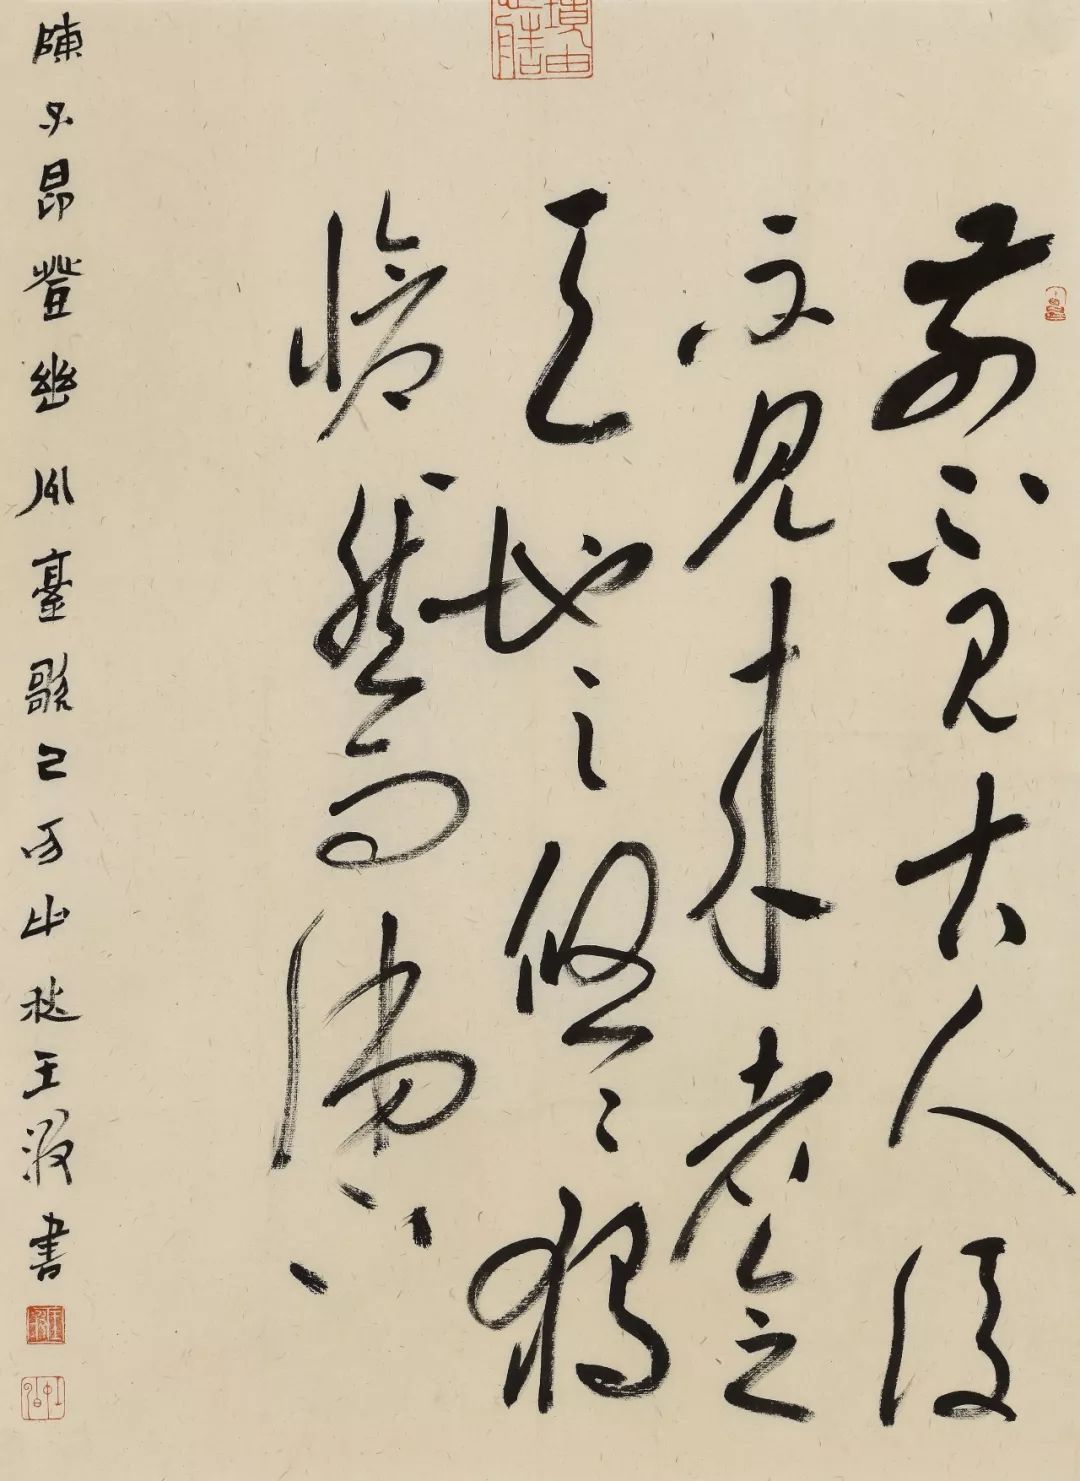 前不見古人後
不見來者念
天地之悠悠獨
愴然而涕下
陳子昂登幽州臺歌己亥中秋王書